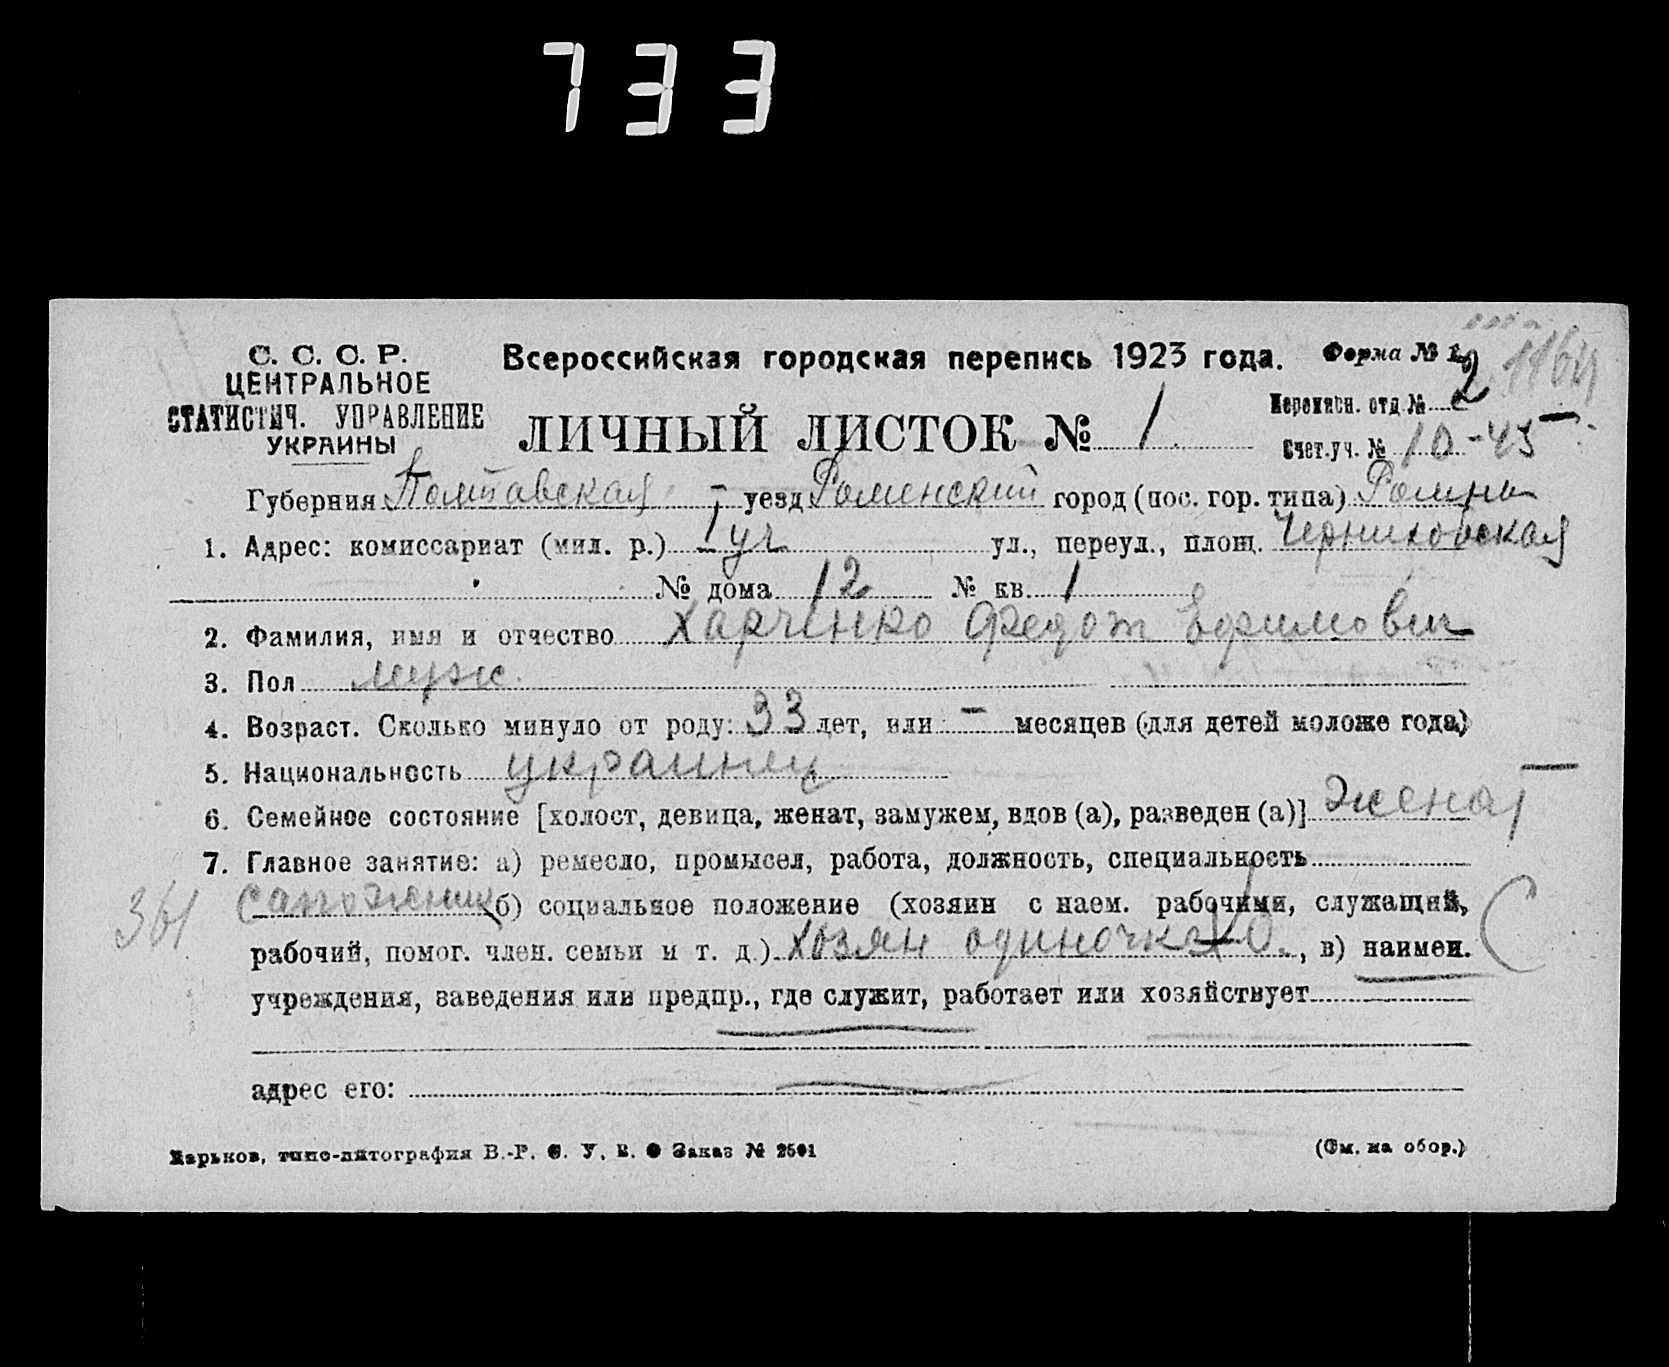 733
С. С. С. Р.
ЦЕНТРАЛЬНОЕ
СТАТИСТИЧ. УПРАВЛЕНИЕ
УКРАИНЫ
Всероссийская городская перепись 1923 года.
Форма № 1.
ЛИЧНЫЙ ЛИСТОК № 1
Переписн. отд. № 2
Счет. уч. № 10-45
Губерния Полтавская уезд Роменский город (пос. гор. типа) Ромны
1. Адрес: комиссариат (мил. р.) 1 уч ул., переул., площ. Черниховская
№ дома 12 № кв. 1
2. Фамилия, имя и отчество Харченко Федот Ефимович
3. Пол муж.
4. Возраст. Сколько минуло от роду: 33 лет, или - месяцев (для детей моложе года)
5. Национальность украинец
6. Семейное состояние [холост, девица, женат, замужем, вдов (а), разведен (а)] женат
7. Главное занятие: а) ремесло, промысел, работа, должность, специальность
361 сапожник б) социальное положение (хозяин с наем. рабочими, служащий,
рабочий, помог. член. семьи и т. д.) хозян одиночка, в) наимен.
учреждения, заведения или предпр., где служит, работает или хозяйствует
адрес его:
Харьков, типо-литография В.-Р. С. У. В. О Заказ № 2501
(См. на обор.)